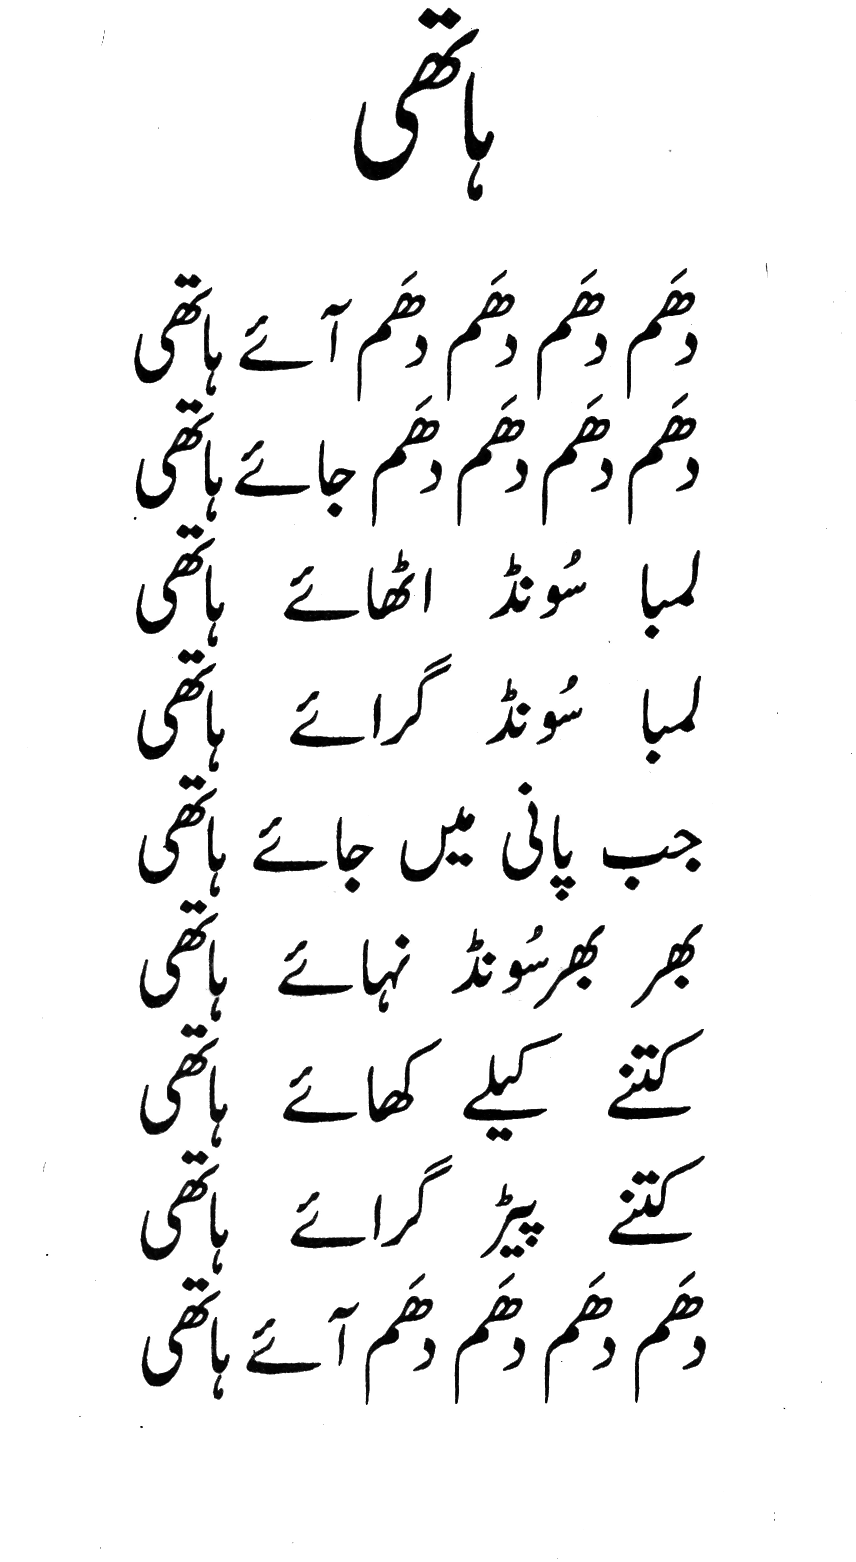 ہاتھی
دھَم دھَم دھَم دھَم آئے ہاتھی
دھَم دھَم دھَم دھَم جائے ہاتھی
لمبا سُونڈ اٹھائے ہاتھی
لمبا سُونڈ گرائے ہاتھی
جب پانی میں جائے ہاتھی
بھر بھر سُونڈ نہائے ہاتھی
کتنے کیلے کھائے ہاتھی
کتنے پیڑ گرائے ہاتھی
دھَم دھَم دھَم دھَم آئے ہاتھی